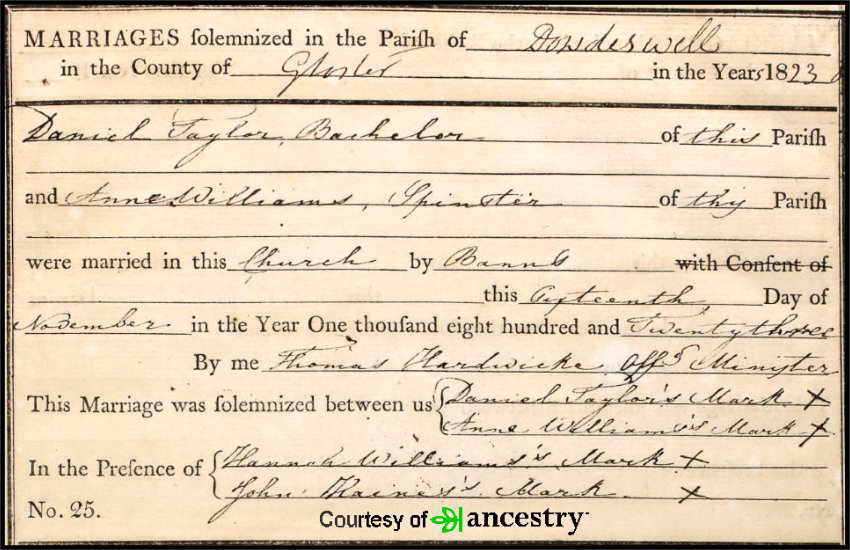 MARRIAGES ſolemnized in the Pariſh of Dowdeswell
in the County of Gloster in the Years 1823
Daniel Taylor, Bachelor of this Pariſh
and Anne Williams, Spinster of this Pariſh
were married in this Church by Banns with Conſent of
this fifteenth Day of
November in the Year One thouſand eight hundred and Twenty three
By me Thomas Hardwicke Offg Minister
This Marriage was ſolemnized between us Daniel Taylor's Mark X
Anne Williams's Mark X
In the Preſence of Hannah Williams's Mark X
John Haines's Mark X
No. 25.
Courtesy of ancestry